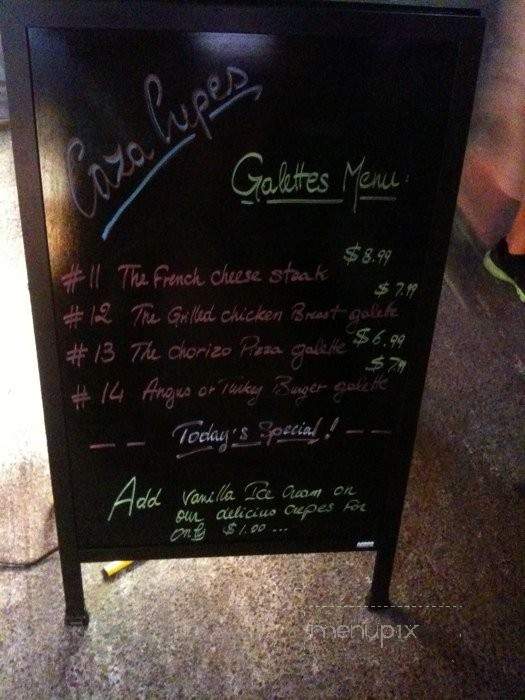 Caza Crepes
Galettes Menu:
#11 The French cheese steak $8.99
#12 The Grilled chicken Breast galette $7.99
#13 The chorizo Pizza galette $6.99
#14 Angus or Turkey Burger galette $7.99
-- Today's Special! --
Add vanilla Ice Cream on
our delicius crepes for
only $1.00...
menupix